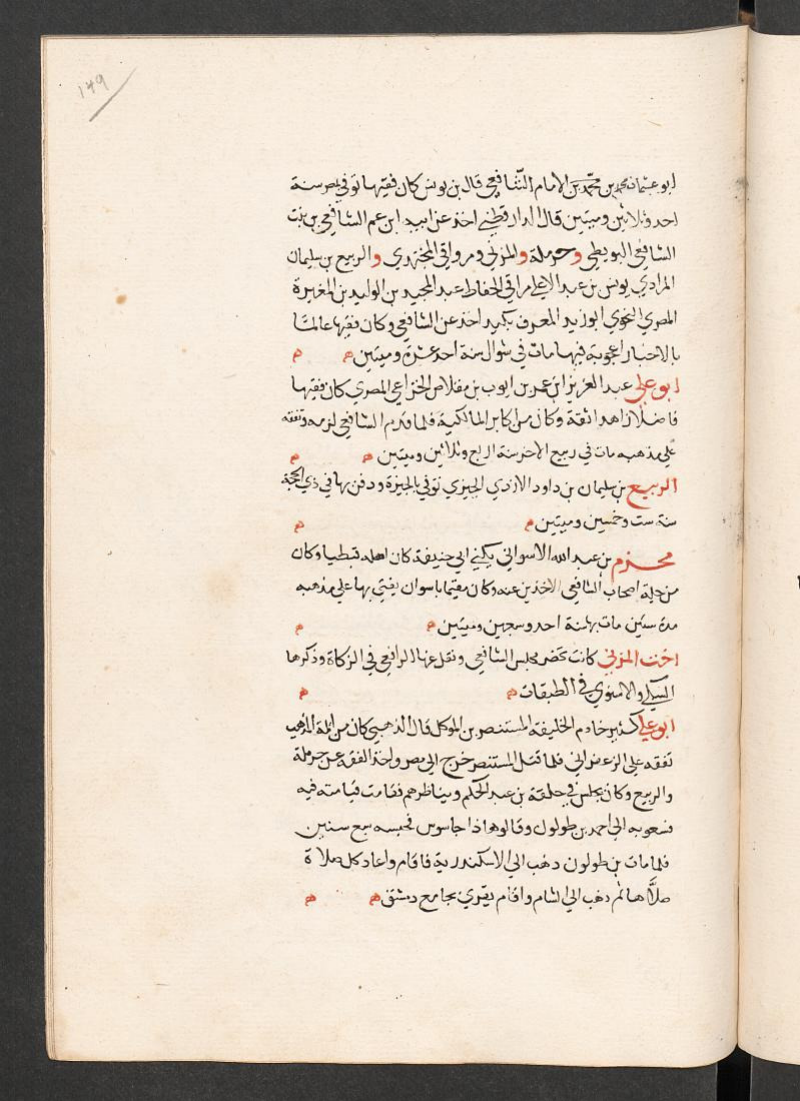 149
ابو عثمان محمد بن محمد بن الامام الشافعي قال بن يونس كان فقيها توفي بمصر سنة
احد وثلاثين وميتين قال الدارقطني اخذ عن ابيه ابن عم الشافعي بن بنت
الشافعي البويطي وحرملة والمزني ومر واقي المجتهدي والربيع بن سليمان
المرادي يونس بن عبد الاعلي مر في الحفاظ عبد المجيد بن الوليد بن المغيرة
المصري النحوي ابو زيد المعروف بكيد اخذ عن الشافعي وكان فقيها عالما
بالاخبار اعجوبة فيها مات في شوال سنة احد عشرة وميتين ه ه
ابو علي عبد العزيز ابن عمر بن ايوب بن مقلاص الخزاعي المصري كان فقيها
فاضلا زاهدا ثقة وكان من اكابر المالكية فلما قدم الشافعي لزمه وتفقه
علي مذهبه مات في ربيع الاخر سنة اربع وثلاثين وميتين ه ه
الربيع بن سليمان بن داود الازدي الجيزي توفي بالجيزة ودفن بها في ذي الحجة
سنة ست وخمسين وميتين ه ه
محزم بن عبد الله الاسواني يكني ابي حنيفة كان اصله قبطيا وكان
من جلة اصحاب الشافعي الاخذين عنه وكان مقيما باسوان يفتي بها علي مذهبه
مدة سنين مات بها سنة احد وسبعين وميتين ه ه
اخت المزني كانت تحضر مجلس الشافعي ونقل عنها الرافعي في الزكاة وذكرها
السبكي والاسنوي في الطبقات ه ه
ابو علي كثير خادم الخليفة المستنصر بن الموكل قال الذهبي كان من ائمة المذهب
تفقه علي الزعفراني فلما قتل المستنصر خرج الي مصر واخذ الفقه عن حرملة
والربيع وكان يجلس في حلقة بن عبد الحكم ويناظرهم فقامت قيامته فيه
فسعوا به الي احمد بن طولون وقالوا هذا جاسوس فحبسه سبع سنين
فلما مات بن طولون ذهب الي الاسكندرية فاقام واعاد كل صلاة
صلاها ثم ذهب الي الشام واقام يقري بجامع دمشق ه ه